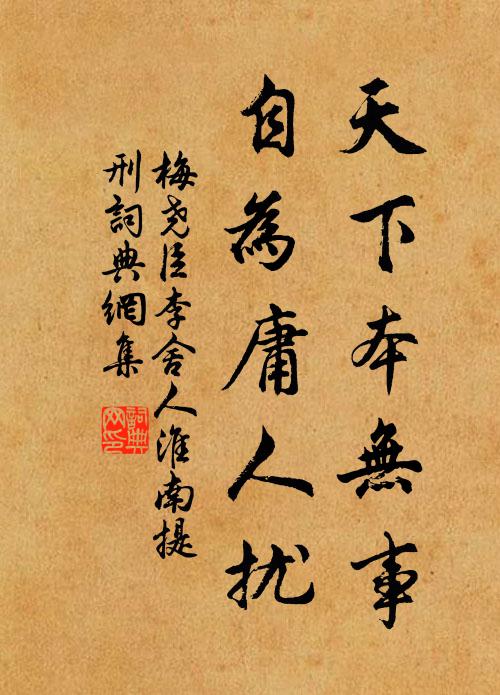 天下本無事
自為庸人扰
梅尧臣李舍人淮南提
刑詞典網集
詞典网印